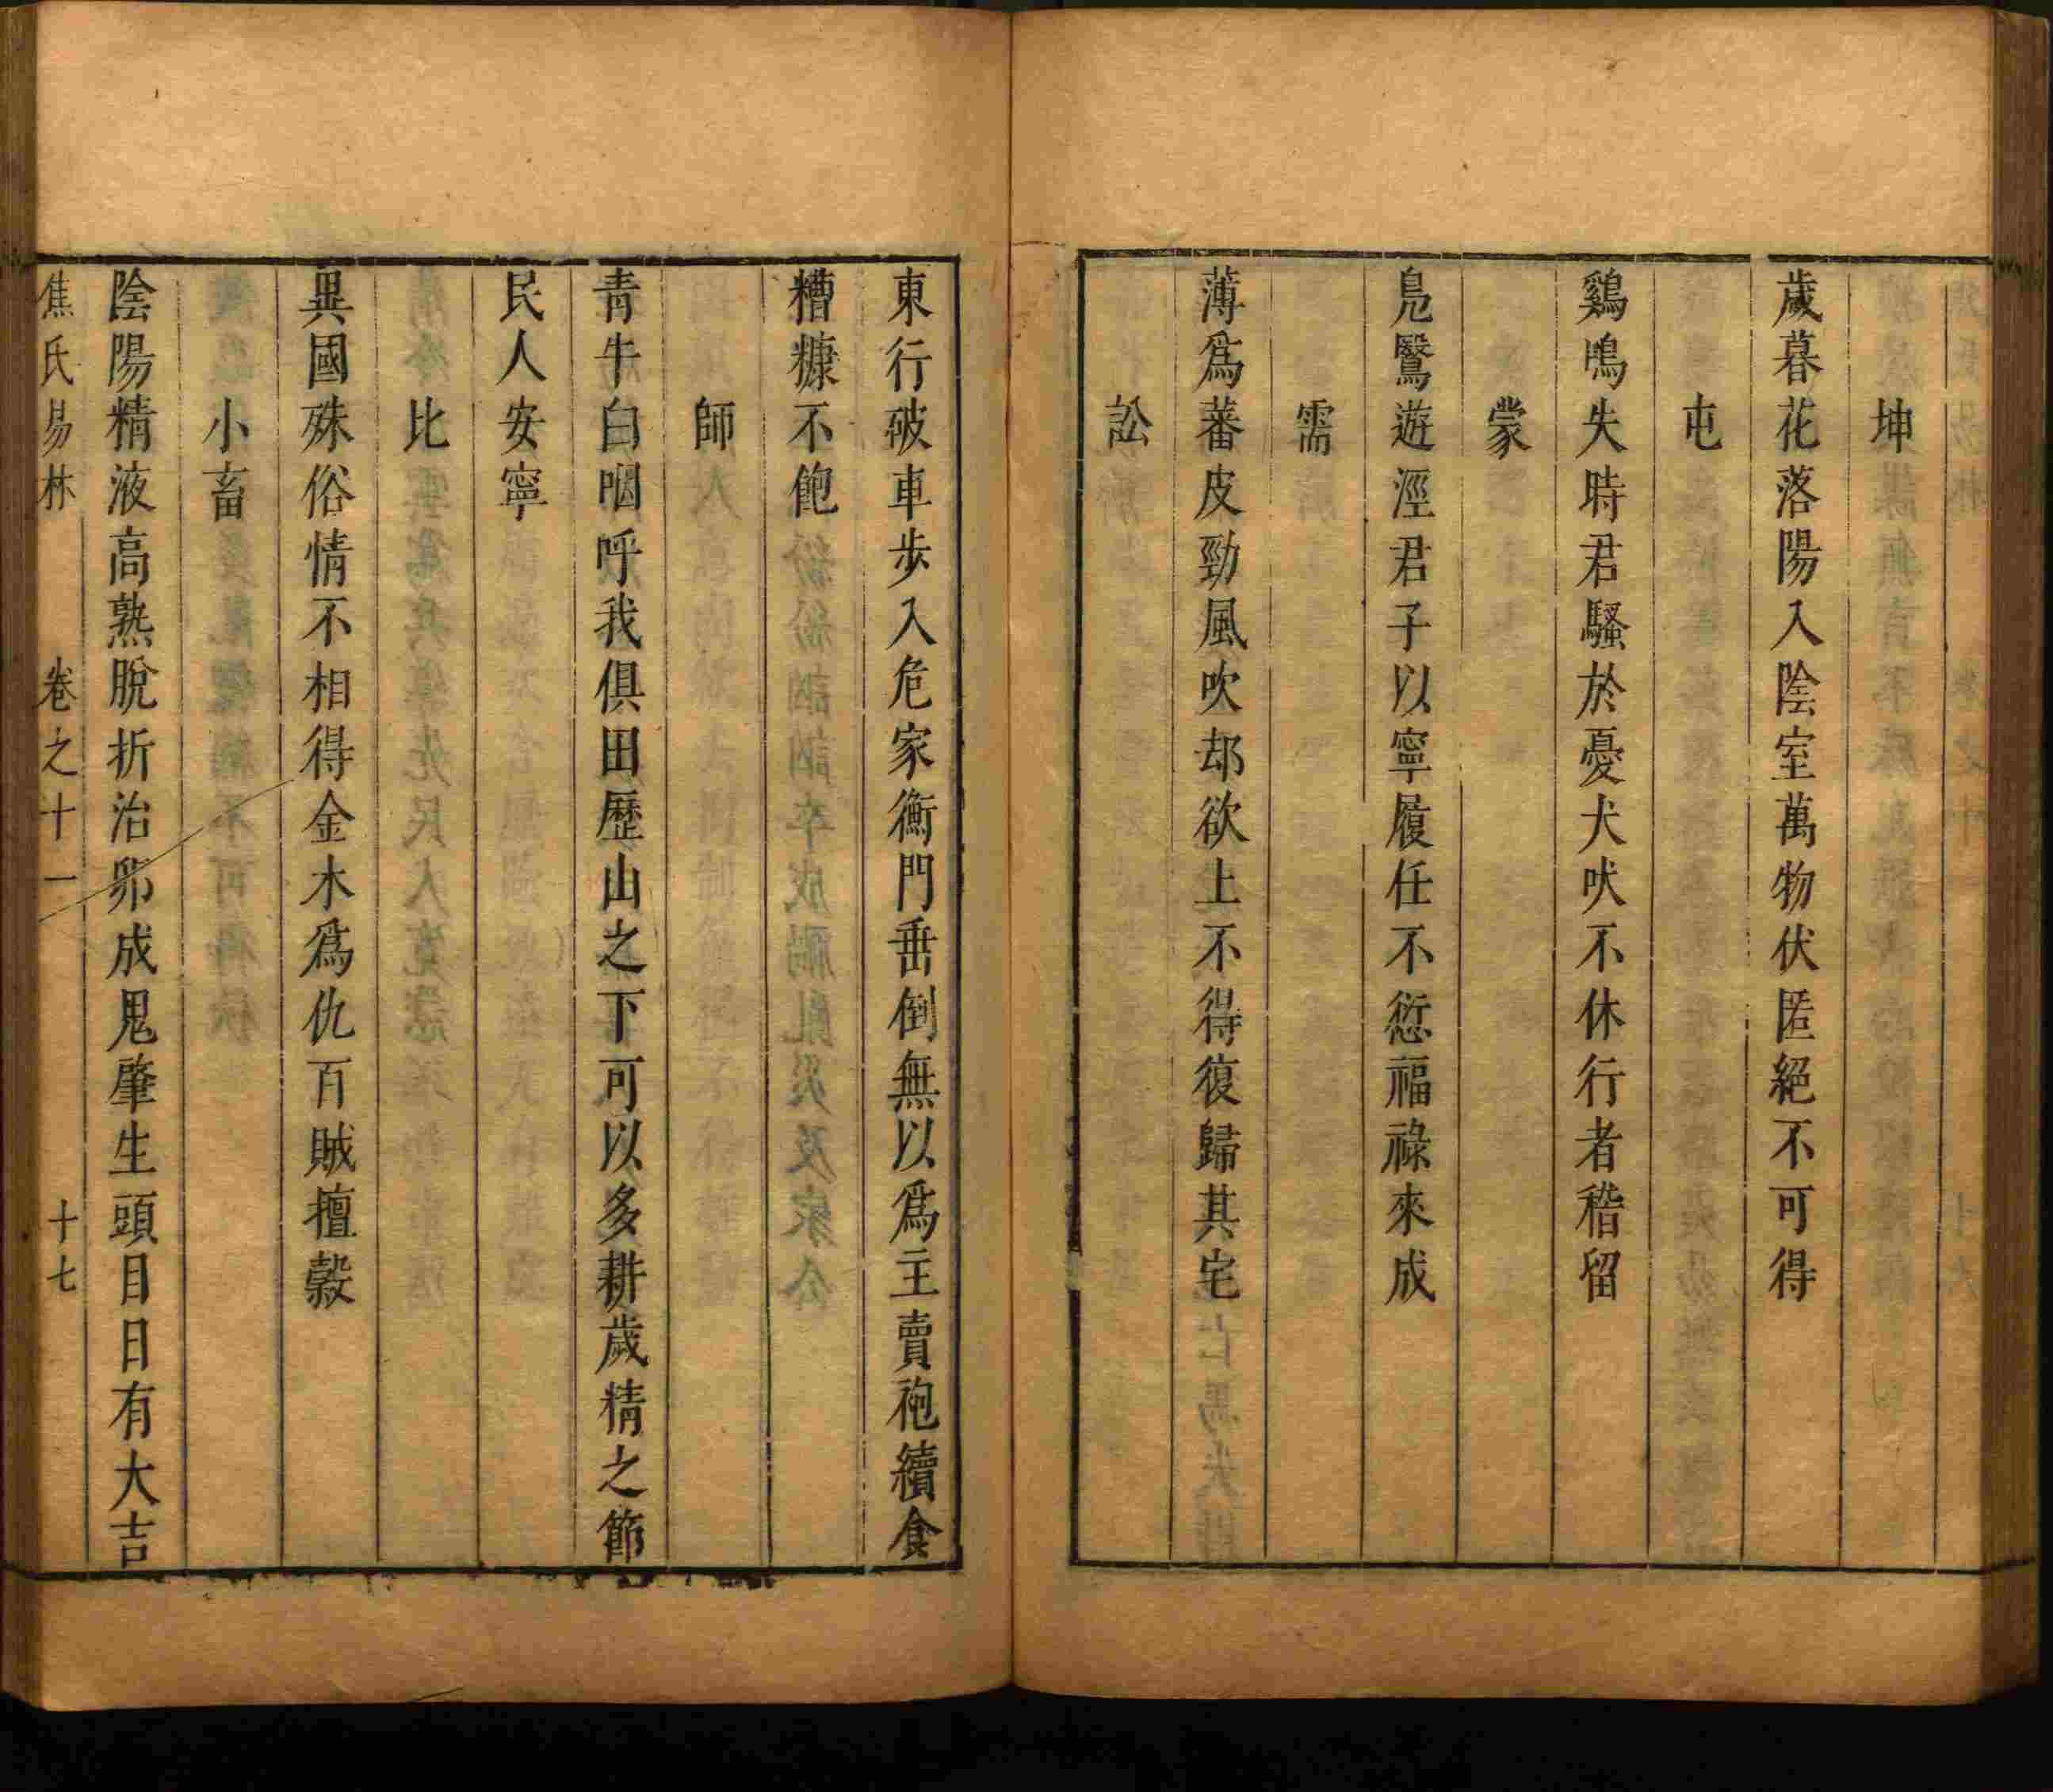 坤
歲暮花落陽入陰室萬物伏匿絕不可得
屯
鷄鳴失時君騷於憂犬吠不休行者稽留
蒙
鳬鷖遊涇君子以寧履任不愆福祿來成
需
薄爲蕃皮勁風吹却欲上不得復歸其宅
訟
東行破車步入危家衡門垂倒無以爲主賣袍續食
糟糠不飽
師
青牛白咽呼我俱田歷山之下可以多耕歲精之節
民人安寧
比
異國殊俗情不相得金木爲仇百賊擅殺
小畜
陰陽精液高熟脫折治卵成鬼肇生頭目日有大吉
焦氏易林 卷之十一 十七